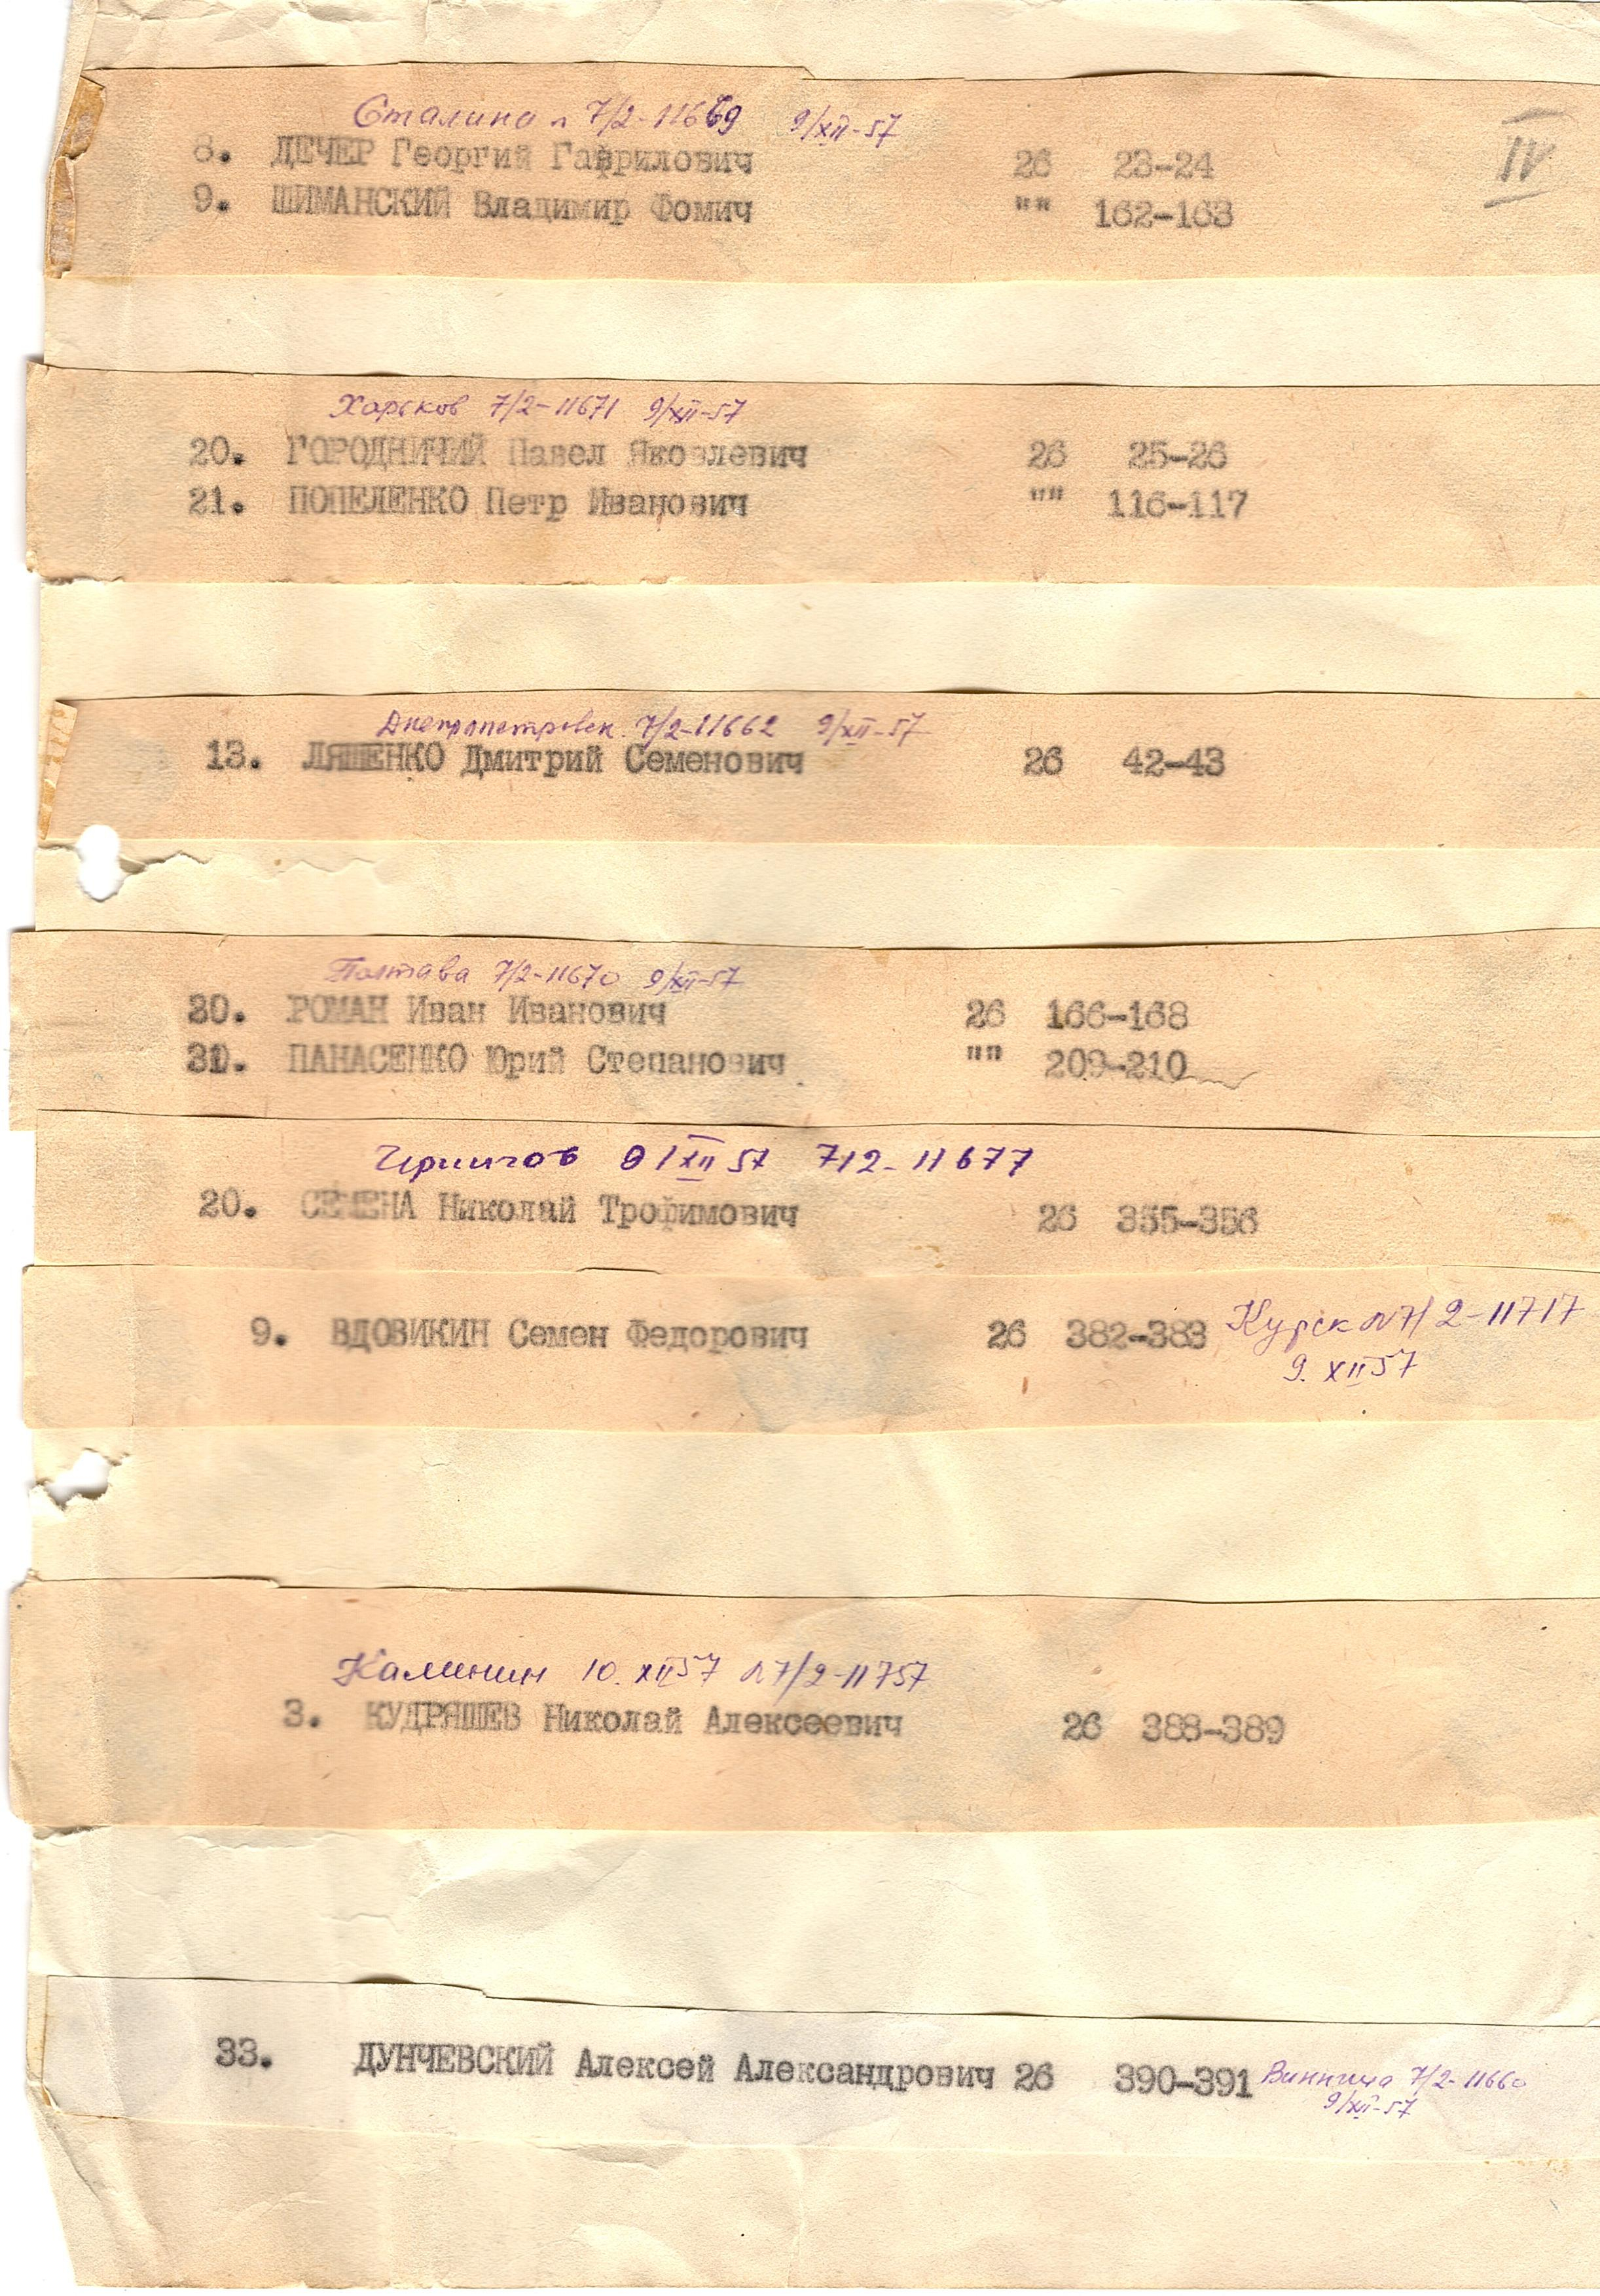 Сталина п 7/2-11669 9/XII-57
IV
8. ДЕЧЕР Георгий Гаврилович 26 23-24
9. ШИМАНСКИЙ Владимир Фомич "" 162-163
Харьков 7/2-11671 9/XII-57
20. ГОРОДНИЧИЙ Павел Яковлевич 26 25-26
21. ПОПЕЛЕНКО Петр Иванович "" 116-117
Днепропетровск. 7/2-11662 9/XII-57
13. ЛЯШЕНКО Дмитрий Семенович 26 42-43
Полтава 7/2-11670 9/XII-57
20. РОМАН Иван Иванович 26 166-168
ПАНАСЕНКО Юрий Степанович "" 209-210
9/XII 57 7/2-11677
20. СЕМЕНА Николай Трофимович 26 355-356
9. ВДОВИКИН Семен Федорович 26 382-383 Курск N7/2-11717
9. XII 57
Калинин 10. XII 57 N7/2-11757
3. КУДРЯШЕВ Николай Алексеевич 26 388-389
33. ДУНЧЕВСКИЙ Алексей Александрович 26 390-391 Винница 7/2-11660
9/XII-57